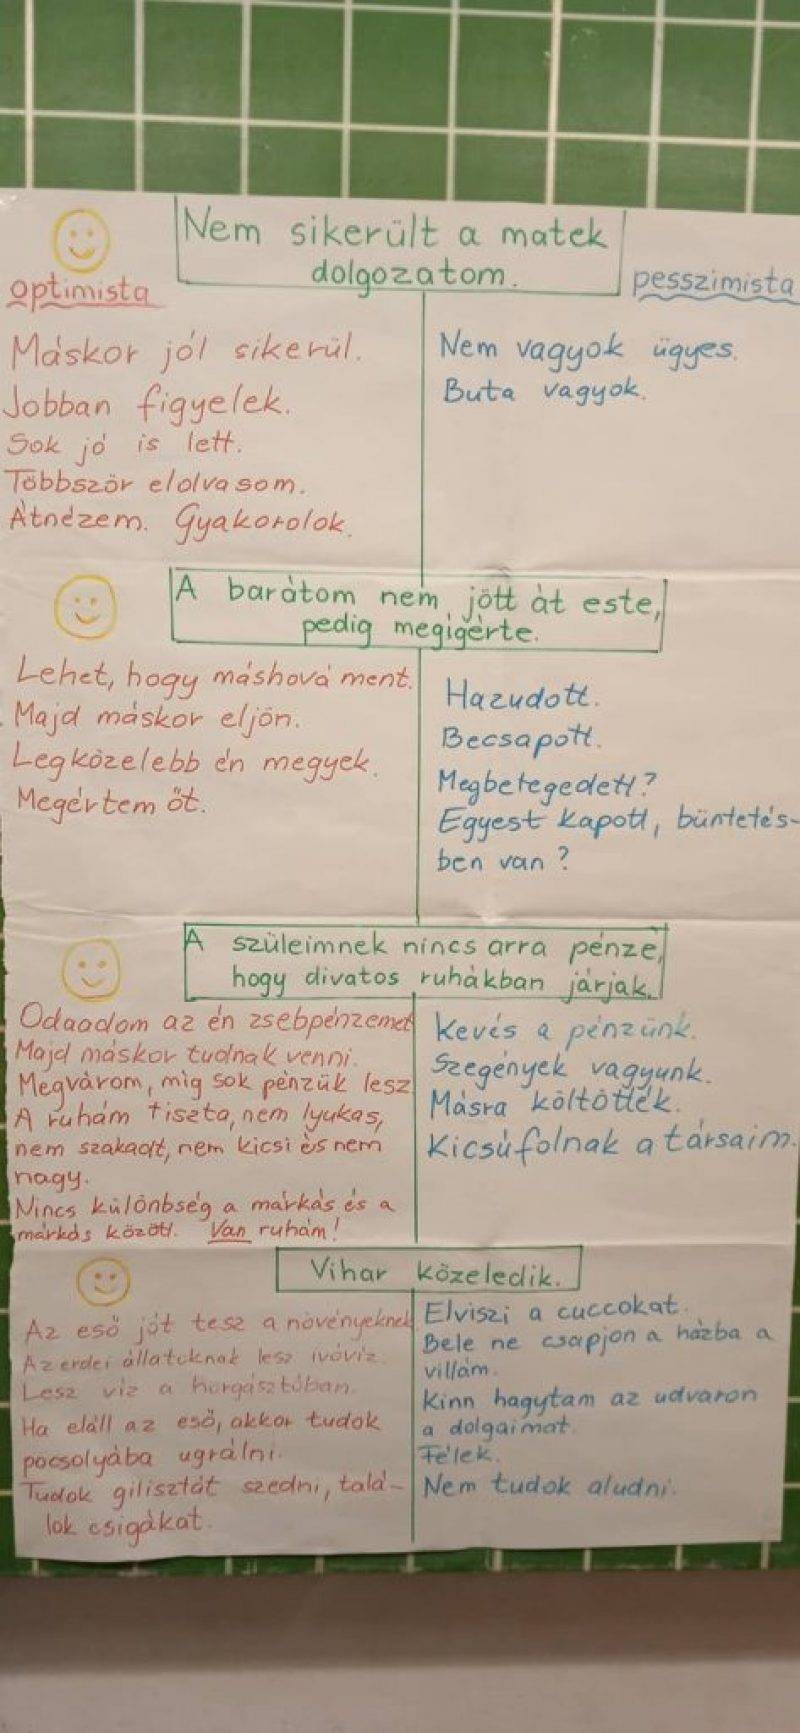 Nem sikerült a matek
dolgozatom.
optimista
pesszimista
Máskor jól sikerül.
Jobban figyelek.
Sok jó is lett.
Többször elolvasom.
Átnézem. Gyakorolok.
Nem vagyok ügyes.
Buta vagyok.
A barátom nem jött át este,
pedig megigérte.
Lehet, hogy máshová ment.
Majd máskor eljön.
Legközelebb én megyek.
Megértem őt.
Hazudott.
Becsapott.
Megbetegedett?
Egyest kapott, büntetés-
ben van?
A szüleimnek nincs arra pénze,
hogy divatos ruhákban járjak.
Odaadom az én zsebpénzemet
Majd máskor tudnak venni.
Megvárom, mig sok pénzük lesz
A ruhám tiszta, nem lyukas,
nem szakadt, nem kicsi és nem
nagy.
Nincs különbség a márkás és a
márkás között. Van ruhám!
Kevés a pénzünk.
Szegények vagyunk.
Másra költötték.
Kicsúfolnak a társaim.
Vihar közeledik.
Az eső jót tesz a növényeknek
Az erdei állatoknak lesz ivóviz.
Lesz viz a horgásztóban.
Ha eláll az eső, akkor tudok
pocsolyába ugrálni.
Tudok gilisztát szedni, talá-
lok csigákat.
Elviszi a cuccokat.
Bele ne csapjon a házba a
villám.
Kinn hagytam az udvaron
a dolgaimat.
Félek.
Nem tudok aludni.